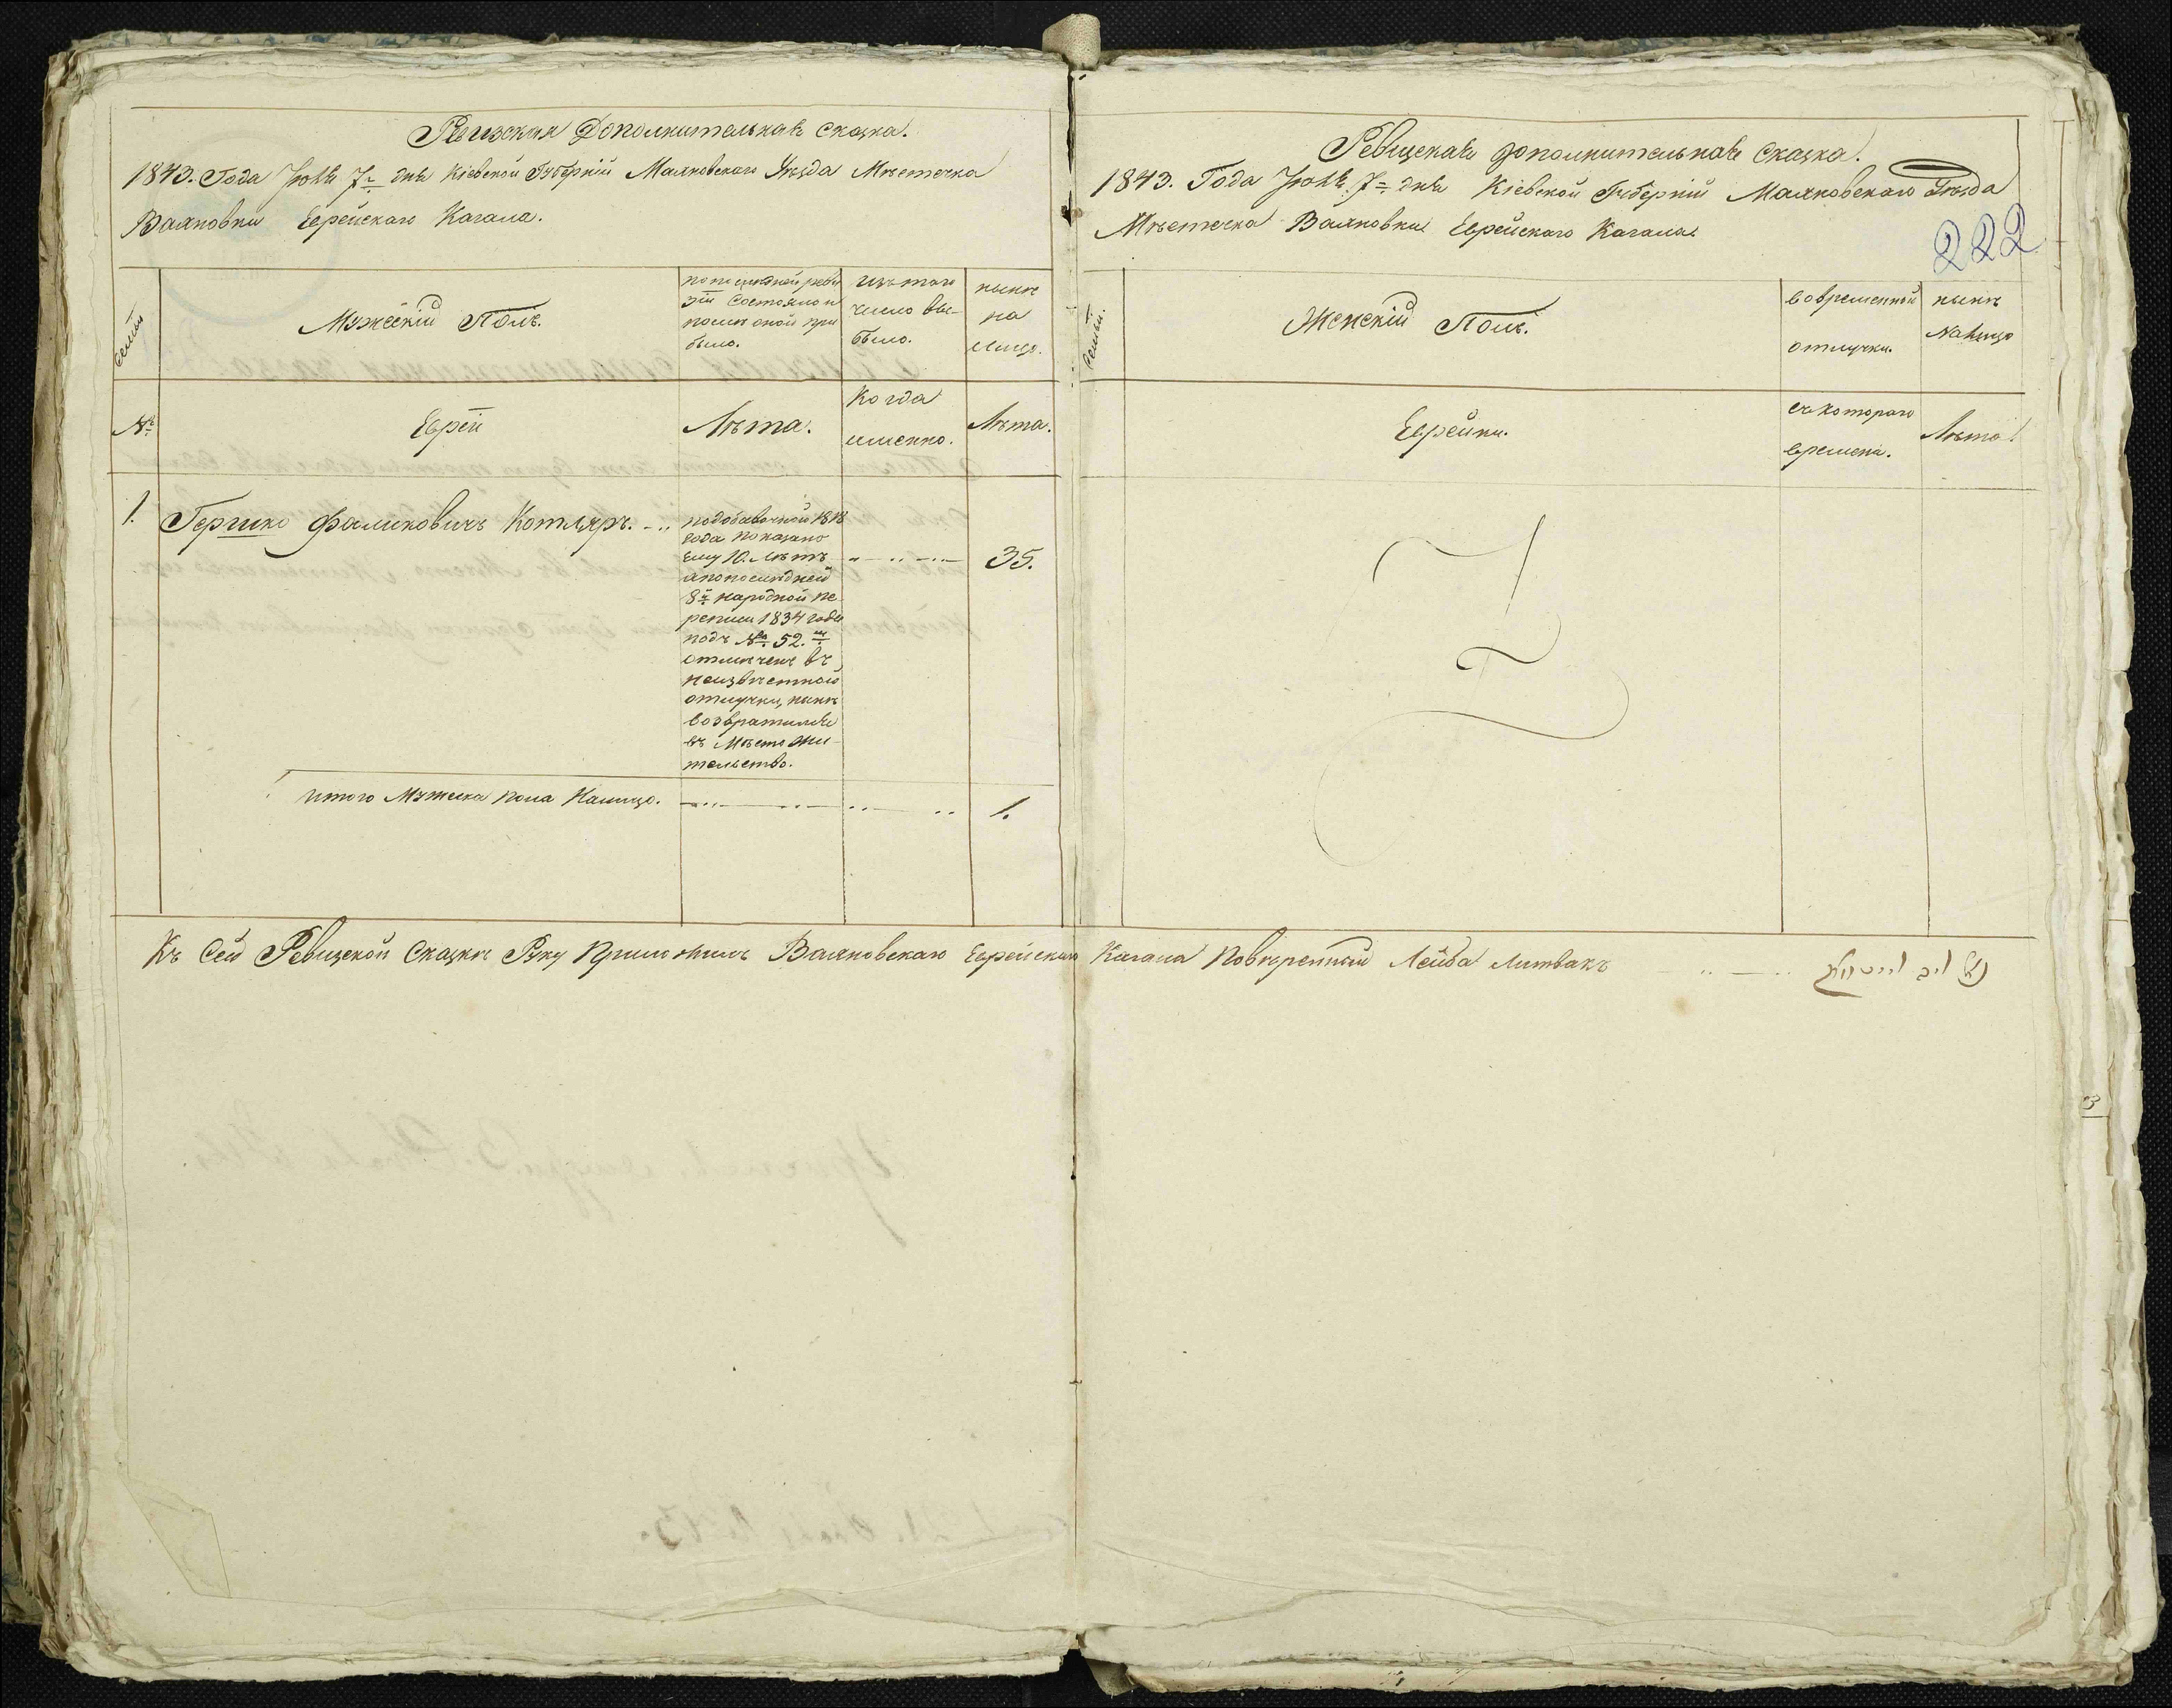 Ревизская Дополнительная сказка.
1843. Года Іюля 7го дня Кіевской Губерніи Махновского Уезда Мѣстечка
Вахновки Еврейского Кагала.
Семьи
Мужескій Полъ.
по последней реви
зіи Состояло и
после оной при
было.
Изъ того
число вы-
было.
нынѣ
на
лицо.
№
Евреи
Лѣта.
Когда
именно.
Лѣта.
1. Гершко Фаликовичъ Котляръ.
подобавочной 1818
Года показано
Ему 10. Лѣтъ
а по последней
8й народной пе
реписи 1834 года
подъ № 52.м
отмеченъ въ
неизвѣстной
отлучки, нынѣ
возвратился
въ Мѣсто жи
тельство.
35.
Итого Мужеска пола Налицо. 1.
Ревизская дополнительная сказка.
1843. Года Іюля 7 дня Кіевской Губерніи Махновского Уезда
Мѣстечка Вахновки Еврейского Кагала.
222
Семьи.
Женскій Полъ.
во временной
отлучки.
нынѣ
Налицо
Еврейки.
съ которого
времени.
Лѣта.
Къ Сей Ревизской Сказки Руку Приложилъ Вахновского Еврейского Кагала Поверенный Лейба Литвакъ